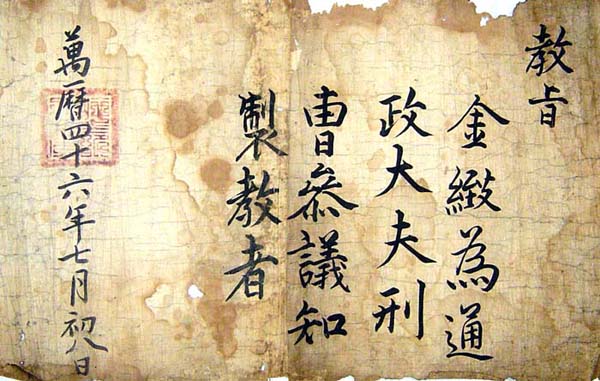 教旨
金緻為通
政大夫刑
曺叅議知
製教者
萬曆四十六年七月初八日